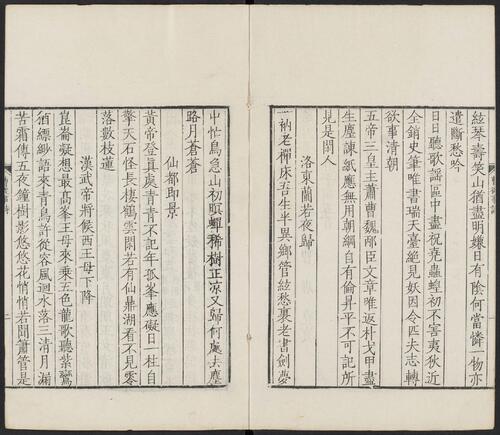 絃琴壽笑山猶盡明孃日有陰何當憐一物亦
遣斷愁吟
日日聽歌謳區中盡祝堯蟲蝗初不害夷狄近
全銷史筆唯書瑞天臺絕見妖因令匹夫志轉
欲事清朝
五帝三皇主蕭曹魏邴臣文章唯返朴戈甲盡
生塵諫紙應無用朝綱自有倫昇平不可記所
見是閑人
洛東蘭若夜歸
一衲老禪床吾生半異鄉管絃愁裏老書劍夢
中忙鳥急山初暝蟬稀樹正凉又歸何處去塵
路月蒼蒼
仙都即景
黃帝登真處青青不記年孤峯應礙日一柱自
擎天石怪長棲鶴雲閑若有仙鼎湖看不見零
落數枝蓮
漢武帝將候西王母下降
崑崙凝想最高峯王母來乘五色龍歌聽紫鸞
猶縹緲語來青鳥許從容風迴水落三清月漏
苦霜傳五夜鐘樹影悠悠花悄悄若聞簫管是